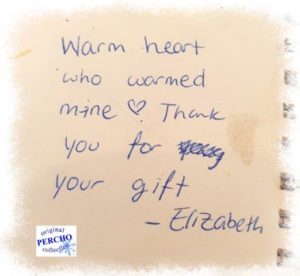 Warm heart
who warmed
mine ♡! Thank
you for
your gift
– Elizabeth
original
PERCHO
collection